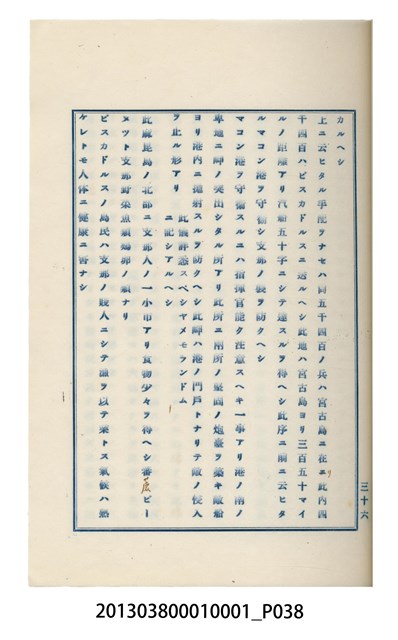 カルヘシ
上ニ云ヒタル手配ヲナセハ両五千四百ノ兵ハ宮古島ニ在ニ此内四
千四百ハピスカドルスニ送ルヘシ此地ハ宮古島ヨリ三百五十マイ
ルノ距離アリ汽船五十字ニシテ達スルヲ得ヘシ此序ニ前ニ云ヒタ
ルマコン港ヲ守衛シ支那ノ襲ヲ防クヘシ
マコン港ヲ守衛スルニハ指揮官能ク注意スヘキ一事アリ港ノ南ノ
卑地ニ岬ノ突出シタル所アリ此所ニ兩所ノ砲臺ヲ築キ敵船
ヨリ港內ニ抛射スルヲ防クヘシ此岬ハ港ノ門戶トナリテ敵ノ侵入
ヲ止ル形アリ
此儀詳悉スベシヤメモランドム
ニ記シアルヘシ
此麻琨島ノ北部ニ支那人ノ一小市アリ食物少々ヲ得ヘシ蕃薯ビー
メツト支那野菜魚類鷄卵ノ類ナリ
ピスカドルスノ島民ハ支那ノ賤人ニシテ漁ヲ以テ業トス氣候ハ熱
ケレトモ人体ニ健康ニ害ナシ
三十六
201303800010001_P038